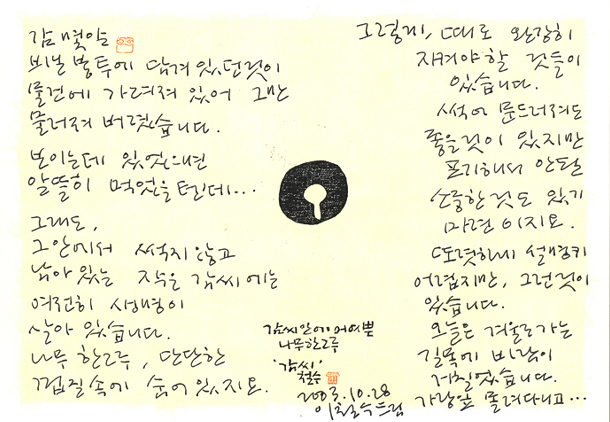 감 몇알
비닐봉투에 담겨있던것이
물건에 가려져 있어 그만
물러져 버렸습니다.
보이는데 있었으면
알뜰히 먹었을텐데...
그래도,
그안에서 썩지않고
남아있는 작은 감씨에는
여전히 생명이
살아 있습니다.
나무 한그루, 단단한
껍질속에 숨어있지요.
그렇게, 때로 완강히
지켜야할 것들이
있습니다.
썩어 문드러져도
좋을것이 있지만
포기해서 안될
소중한것도 있기
마련이지요.
또렷하게 설명키
어렵지만, 그런것이
있습니다.
오늘은 겨울로가는
길목에 바람이
거칠었습니다.
가랑잎 몰려다니고...
감씨안에 어여쁜
나무한그루
'감씨'
철수
2003.10.28
이철수드림